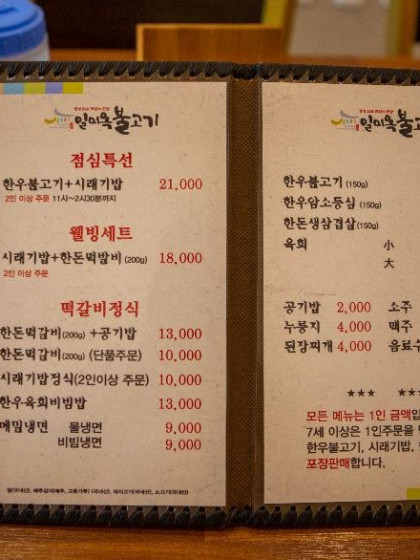 일미옥불고기
점심특선
한우불고기+시래기밥 21,000
2인 이상 주문 11시~2시30분까지
웰빙세트
시래기밥+한돈떡갈비(200g) 18,000
2인 이상 주문
떡갈비정식
한돈떡갈비(200g)+공기밥 13,000
한돈떡갈비(200g) (단품주문) 10,000
시래기밥정식(2인이상 주문) 10,000
한우육회비빔밥 13,000
메밀냉면 물냉면 9,000
비빔냉면 9,000
일미옥불고
한우불고기(150g)
한우암소등심(150g)
한돈생삼겹살(150g)
육회 小
大
공기밥 2,000 소주
누룽지 4,000 맥주
된장찌개 4,000 음료수
★★★ ★★★
모든 메뉴는 1인 금액입
7세 이상은 1인주문을
한우불고기, 시래기밥,
포장판매합니다.